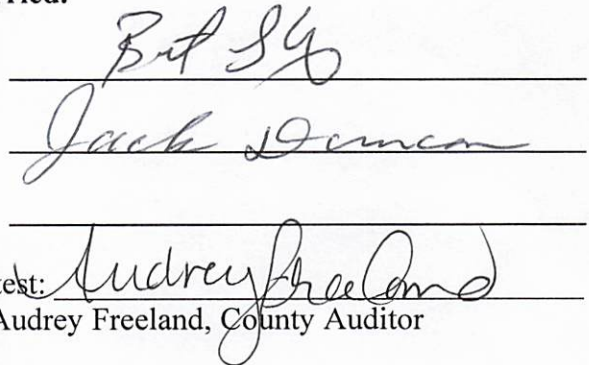 Jack Duncan
test: Audrey Freeland
Audrey Freeland, County Auditor